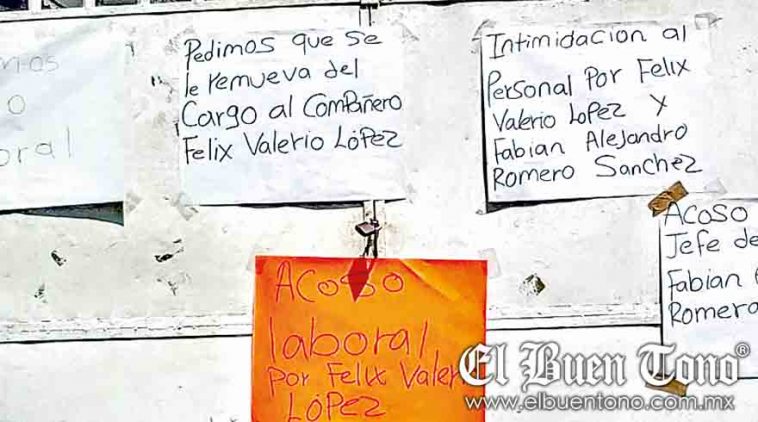 o
oral
Pedimos que se
le remueva del
Cargo al Compañero
Felix Valerio López
Intimidacion al
Personal Por Felix
Valerio Lopez y
Fabian Alejandro
Romero Sanchez
Acoso
Jefe de
Fabian
Romero
Acoso
laboral
por Felix Valer
López
El Buen Tono®
www.elbuentono.com.mx